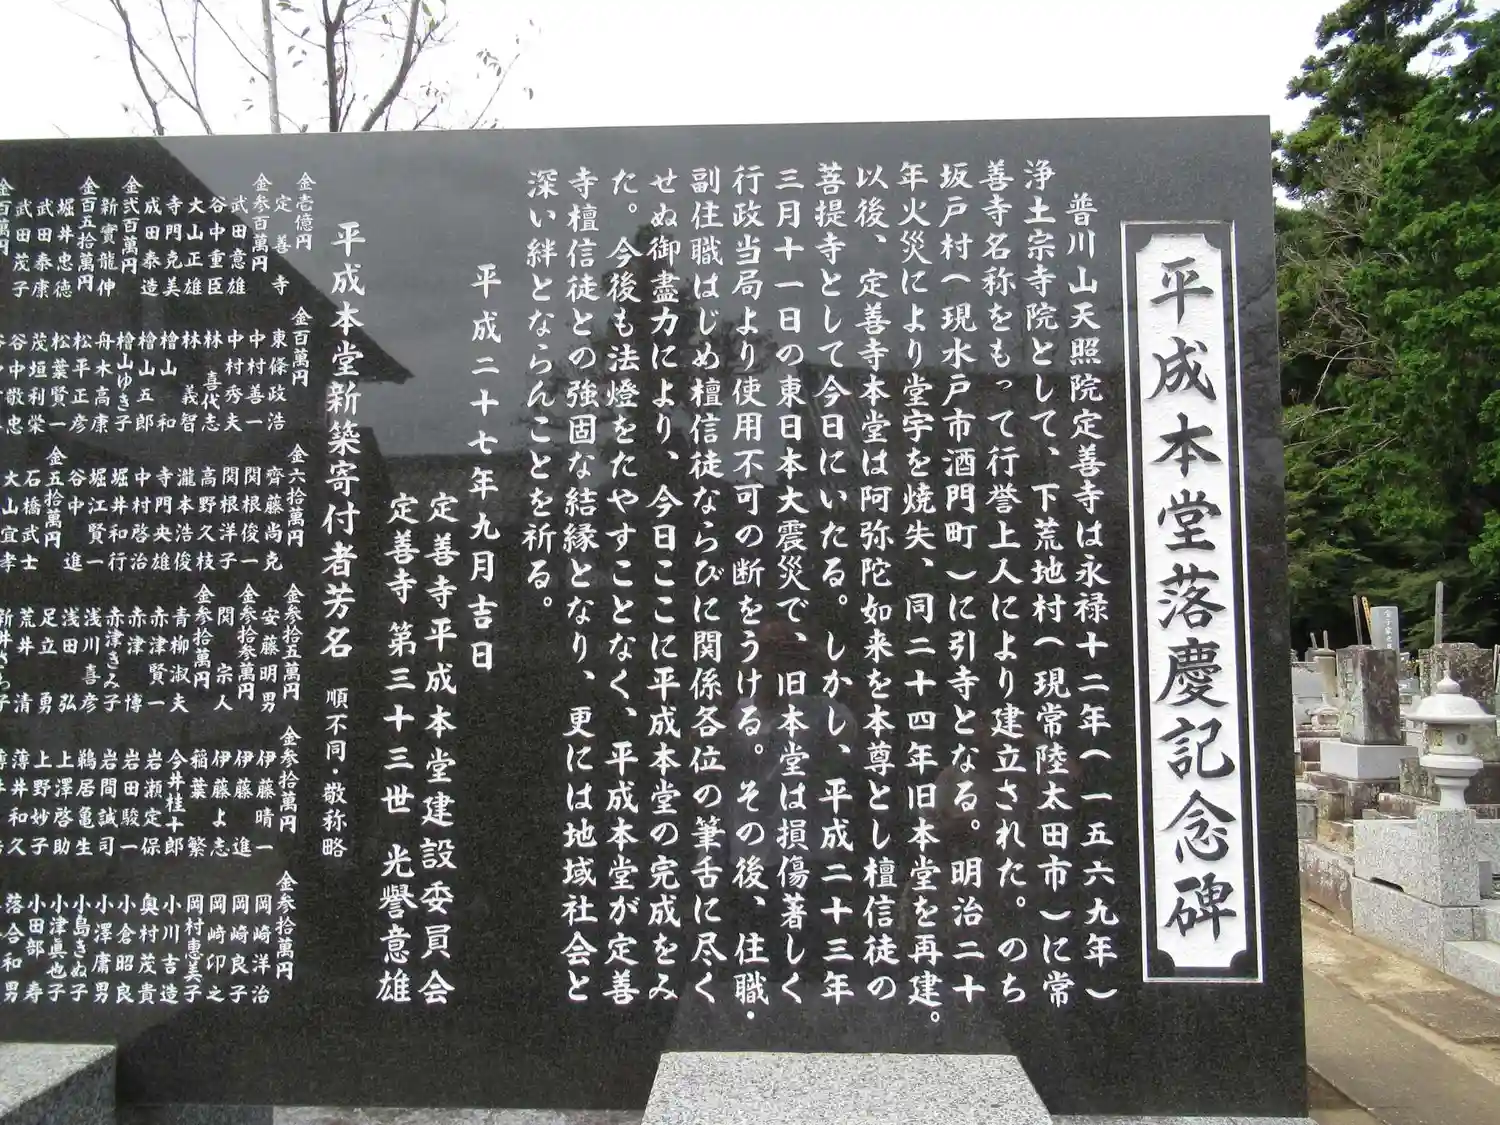 平成本堂落慶記念碑
普川山天照院定善寺は永禄十二年（一五六九年）
浄土宗寺院として、下荒地村（現常陸太田市）に常
善寺名称をもって行誉上人により建立された。のち
坂戸村（現水戸市酒門町）に引寺となる。明治二十
年火災により堂宇を焼失、同二十四年旧本堂を再建。
以後、定善寺本堂は阿弥陀如来を本尊とし檀信徒の
菩提寺として今日にいたる。しかし、平成二十三年
三月十一日の東日本大震災で、旧本堂は損傷著しく
行政当局より使用不可の断をうける。その後、住職・
副住職はじめ檀信徒ならびに関係各位の筆舌に尽く
せぬ御盡力により、今日ここに平成本堂の完成をみ
た。今後も法燈をたやすことなく、平成本堂が定善
寺檀信徒との強固な結縁となり、更には地域社会と
深い絆とならんことを祈る。
平成二十七年九月吉日
定善寺平成本堂建設委員会
定善寺 第三十三世 光譽意雄
平成本堂新築寄付者芳名 順不同・敬称略
金壱億円
定善寺
金参百萬円
武田意雄
谷中重臣
大山正雄
寺門克美
成田泰造
金弐百萬円
新實龍伸
金百五拾萬円
堀井忠徳
武田泰康
武田茂子
金百萬円
東條政浩
中村善一
中村秀夫
林喜代志
林義智
檜山和
檜山五郎
檜山ゆき子
舟木高康
松平正彦
松葉賢一
茂垣利栄
谷中敬忠
金六拾萬円
齊藤尚克
関根俊一
関根洋子
高野久枝
瀧本浩俊
寺門央雄
中村啓治
堀井和行
堀江賢一
谷中進
金五拾萬円
石橋武士
大山宜孝
金参拾五萬円
安藤明男
金参拾参萬円
関宗人
金参拾萬円
青柳淑夫
赤津賢一
赤津博
赤津きみ子
浅川喜彦
浅田弘
足立勇
荒井清
金参拾萬円
伊藤晴一
伊藤進
伊藤よ志
稲葉繁
今井桂十郎
岩瀬定保
岩田駿一
岩間誠司
鵜居亀生
上澤啓助
上野妙子
薄井和久
金参拾萬円
岡﨑洋治
岡﨑良子
岡﨑卯之
岡村惠美子
小川吉造
奥村茂貴
小倉昭良
小澤庸男
小島きぬ子
小津眞也子
小田部寿
落合和男